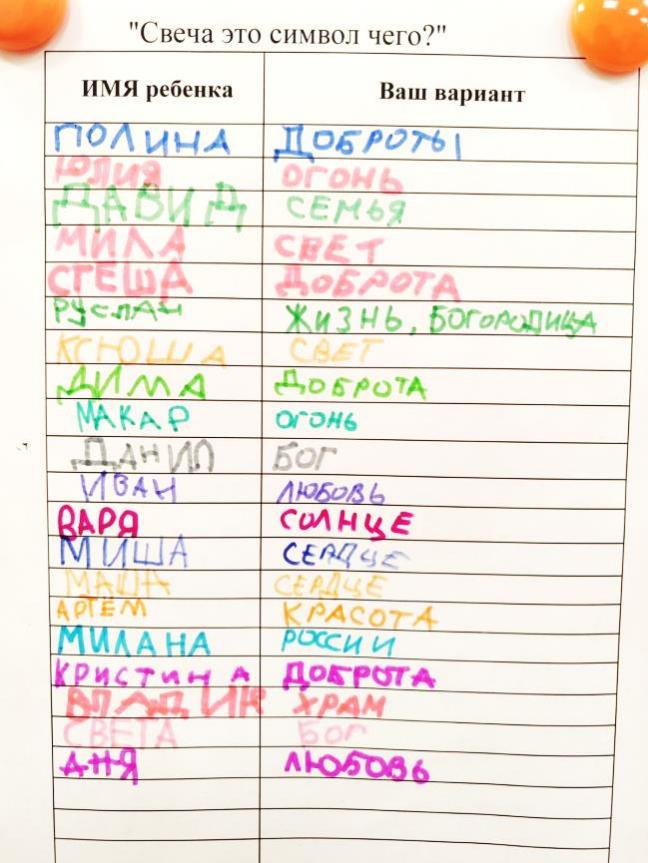 "Свеча это символ чего?"
ИМЯ ребенка Ваш вариант
ПОЛИНА ДОБРОТЫ
ЮЛИЯ ОГОНЬ
ДАВИД СЕМЬЯ
МИЛА СВЕТ
СТЕША ДОБРОТА
РУСЛАН ЖИЗНЬ, БОГОРОДИЦА
КСЮША СВЕТ
ДИМА ДОБРОТА
МАКАР ОГОНЬ
ДАНИЛ БОГ
ИВАН ЛЮБОВЬ
ВАРЯ СОЛНЦЕ
МИША СЕРДЦЕ
МАША СЕРДЦЕ
АРТЁМ КРАСОТА
МИЛАНА РОССИИ
КРИСТИНА ДОБРОТА
ВЛАДИК ХРАМ
СВЕТА БОГ
АНЯ ЛЮБОВЬ